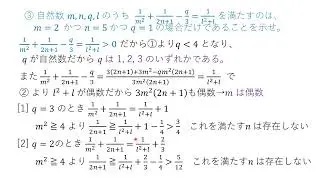 ③ 自然数 m, n, q, l のうち 1/m² + 1/(2n+1) − q/3 = 1/(l²+l) を満たすのは、
m = 2 かつ n = 5 かつ q = 1 の場合だけであることを示せ。
1/m² + 1/(2n+1) − q/3 = 1/(l²+l) > 0 だから①より q < 4 となり、
q が自然数だから q は 1, 2, 3 のいずれかである。
また 1/m² + 1/(2n+1) − q/3 = (3(2n+1)+3m²−qm²(2n+1))/(3m²(2n+1)) = 1/(l²+l) で
② より l² + l が偶数だから 3m²(2n+1) も偶数→m は偶数
[1] q = 3 のとき 1/m² + 1/(2n+1) = 1/(l²+l) + 1
m² ≧ 4 より 1/(2n+1) ≧ 1/(l²+l) + 1 − 1/4 > 3/4 これを満たす n は存在しない
[2] q = 2 のとき 1/m² + 1/(2n+1) = 1/(l²+l) + 2/3
m² ≧ 4 より 1/(2n+1) ≧ 1/(l²+l) + 2/3 − 1/4 > 5/12 これを満たす n は存在しない